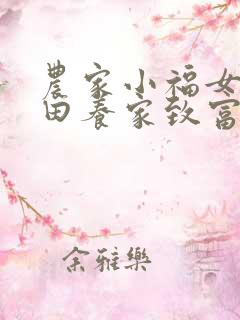 農家小福女
田养家致富
余雅樂